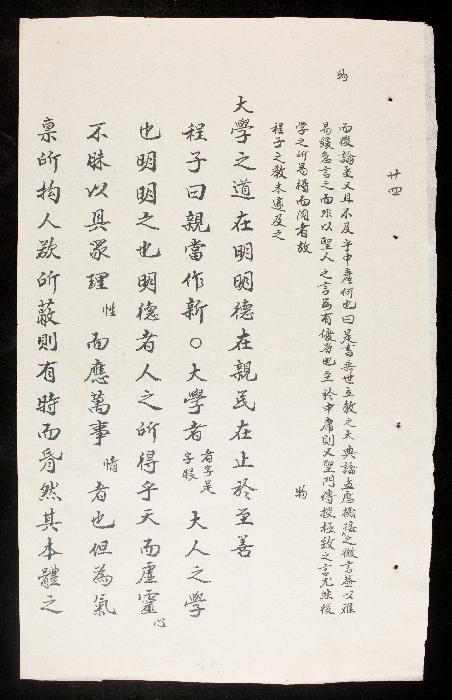 廿四
而後論孟又且不及乎中庸何也曰是書垂世立教之大典論孟應機接之微言蓋以難
易緩急言之而非以聖人之言為有優劣也至於中庸則又聖門傳授極致之言尤非後
学之所易得而闻者故
程子之教未遽及之
大學之道在明明德在親民在止於至善
程子曰親當作新○大學者 者字是字眼 大人之學
也明明之也明德者人之所得乎天而虛靈 心
不昧以具眾理 性 而應萬事 情 者也但為氣
稟所拘人欲所蔽則有時而昏然其本體之